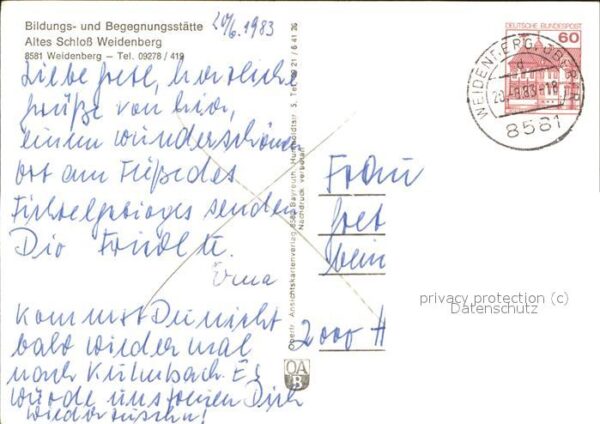 Bildungs- und Begegnungsstätte
Altes Schloß Weidenberg
8581 Weidenberg – Tel. 09278 / 419
20/6. 1983
Liebe Gret, herzliche
Grüße von hier,
einem wunderschönen
Ort am Fuße des
Fichtelgebirges sendet
Dir
Erna
Kommst Du nicht
bald wieder mal
nach Kulmbach Es
würde uns freuen Dich
wiederzusehen!
Oberfr. Ansichtskartenverlag 8580 Bayreuth, Humboldtstr. 5, Tel. 09 21 / 6 41 36
Nachdruck verboten
OA
B
DEUTSCHE BUNDESPOST
60
WEIDENBERG, OBERFR
20.-6.83-18
8581
Frau
Gret
2000 H
privacy protection (c)
Datenschutz